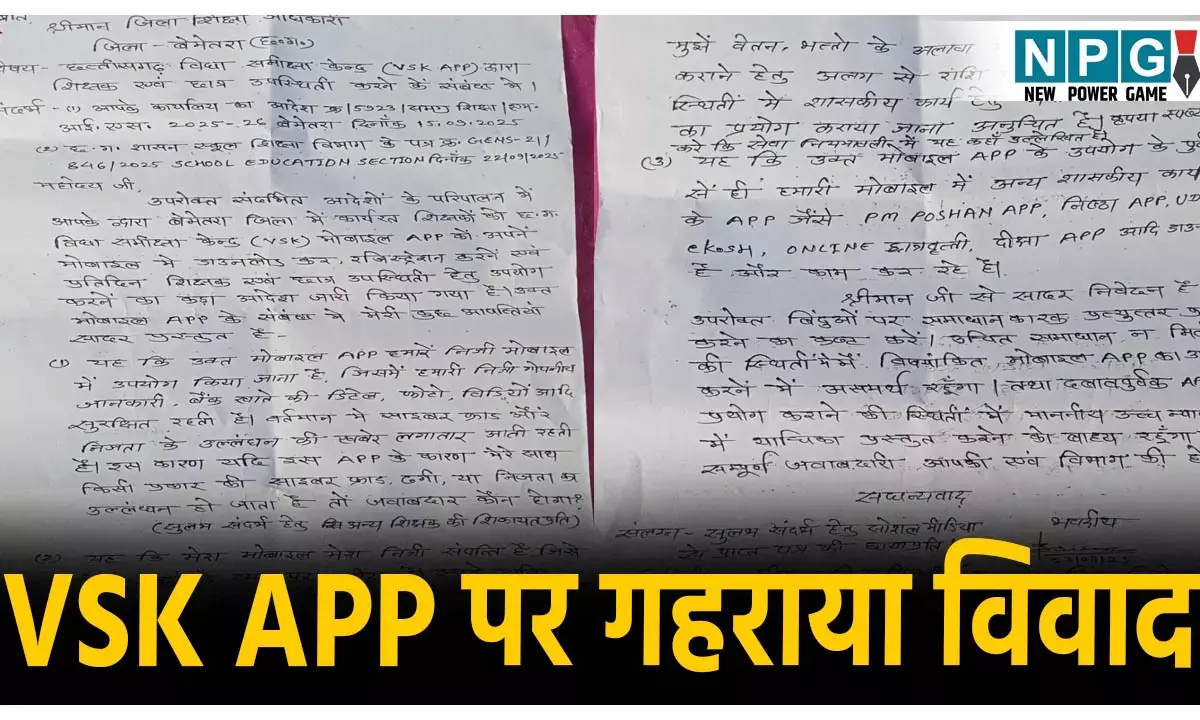 श्रीमान जिला शिक्षा अधिकारी
जिला - बेमेतरा (छ०ग०)
विषय - छत्तीसगढ़ विद्या समीक्षा केन्द्र (VSK APP) द्वारा
शिक्षक एवं छात्र उपस्थिती करने के संबंध में।
संदर्भ - (1) आपके कार्यालय का आदेश क्र/5923/समग्र शिक्षा/एम.
आई. एस. 2025-26 बेमेतरा दिनाँक 15.09.2025
(2) छ.ग. शासन स्कूल शिक्षा विभाग के पत्र क्र. GENS-21/
846/2025 SCHOOL EDUCATION SECTION दिनाँक 22/09/2025
महोदय जी,
उपरोक्त संदर्भित आदेशों के परिपालन में
आपके द्वारा बेमेतरा जिला में कार्यरत शिक्षकों को छ.ग.
विद्या समीक्षा केन्द्र (VSK) मोबाइल APP को अपने
मोबाइल में डाउनलोड कर, रजिस्ट्रेशन करने एवं
प्रतिदिन शिक्षक एवं छात्र उपस्थिती हेतु उपयोग
करने का कड़ा आदेश जारी किया गया है। उक्त
मोबाइल APP के संबंध में मेरी कुछ आपत्तियां
सादर प्रस्तुत है
(1) यह कि उक्त मोबाइल APP हमारे निजी मोबाइल
में उपयोग किया जाना है, जिसमें हमारी निजी गोपनीय
जानकारी, बैंक खाते की डिटेल, फोटो, विडियो आदि
सुरक्षित रहती है। वर्तमान में साइबर फ्राड और
निजता के उल्लंघन की खबरें लगातार आती रहती
है। इस कारण यदि इस APP के कारण मेरे साथ
किसी प्रकार की साइबर फ्राड, ठगी, या निजता का
उल्लंघन हो जाता है तो जवाबदार कौन होगा?
(सुलभ संदर्भ हेतु अन्य शिक्षक की शिकायत प्रति)
(2) यह कि मेरा मोबाइल मेरा निजी संपत्ति है जिसे
मुझे वेतन, भत्तो के अलावा
कराने हेतु अलग से राशि
स्थिती में शासकीय कार्य हेतु
का प्रयोग कराया जाना अनुचित है। कृपया स्पष्ट
करें कि सेवा नियमावली में यह कहाँ उल्लेखित है।
(3) यह कि उक्त मोबाइल APP के उपयोग के
से ही हमारी मोबाइल में अन्य शासकीय कार्य
के APP जैसे PM POSHAN APP, निष्ठा APP, UD
ekosh, ONLINE छात्रवृत्ती, दीक्षा APP आदि
है और काम कर रहे है।
श्रीमान जी से सादर निवेदन है
उपरोक्त बिंदुओं पर समाधान कारक प्रत्युत्तर
करने का कष्ट करें। उचित समाधान न
की स्थिती में मैं विषयांकित मोबाइल APP का
करने में असमर्थ रहूँगा। तथा दबावपूर्वक
प्रयोग कराने की स्थिती में माननीय उच्च
में याचिका प्रस्तुत करने को बाध्य रहूँगा
सम्पूर्ण जवाबदारी आपकी एवं विभाग की
सधन्यवाद
संलग्न - सुलभ संदर्भ हेतु सोशल मीडिया
से प्राप्त पत्र की छायाप्रति।
भवदीय
NPG
NEW POWER GAME
VSK APP पर गहराया विवाद